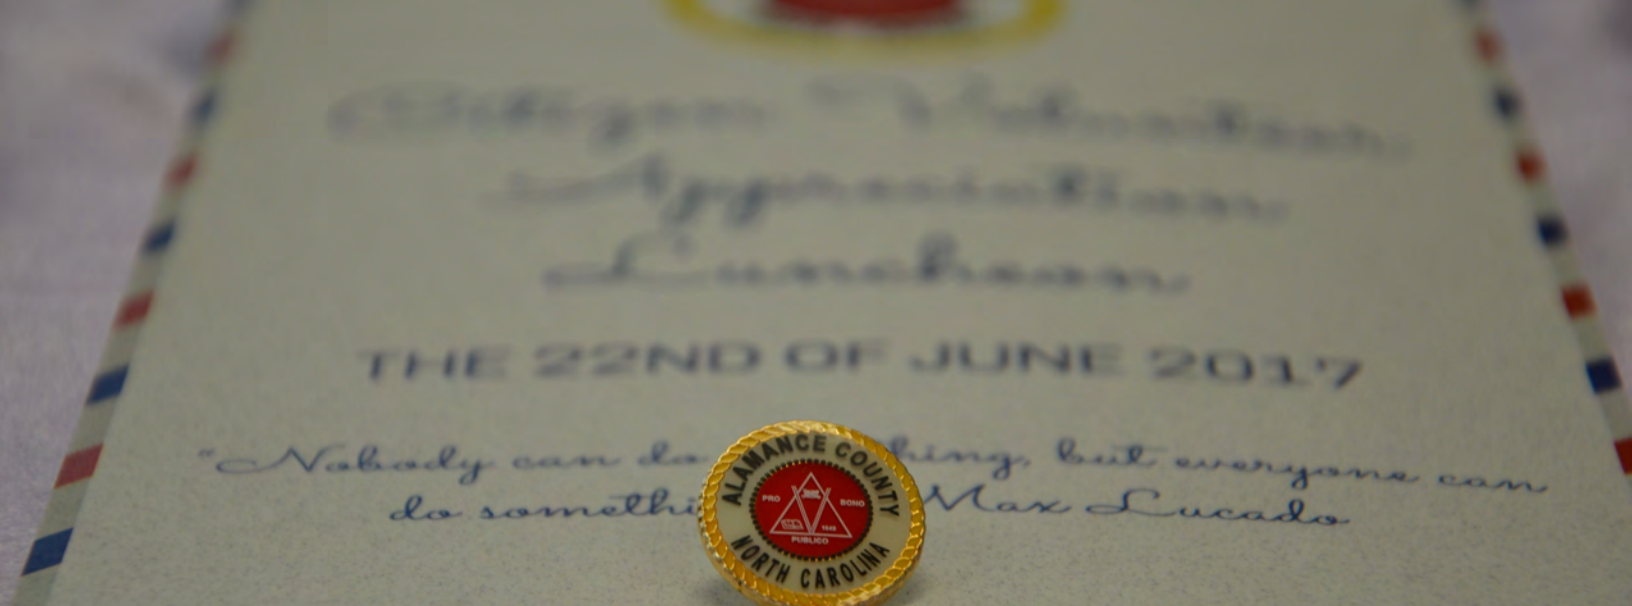 Citizen Volunteer
Appreciation
Luncheon
THE 22ND OF JUNE 2017
"Nobody can do hing, but everyone can
do somethi Max Lucado
ALAMANCE COUNTY
PRO BONO
1849
PUBLICO
NORTH CAROLINA